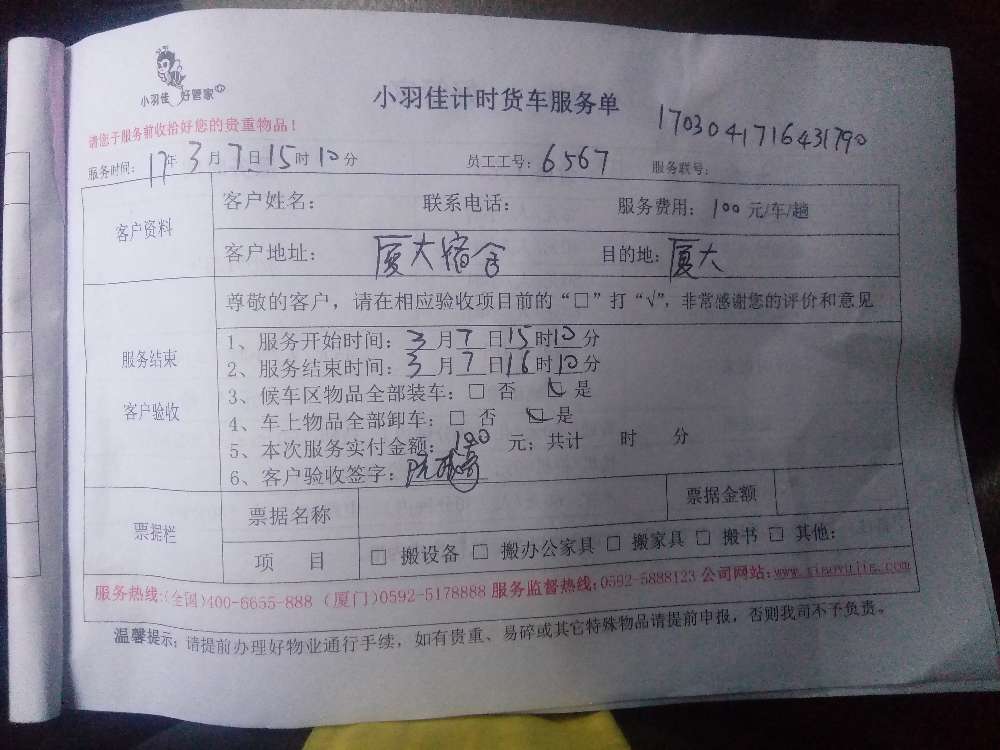 小羽佳 好管家
小羽佳计时货车服务单
1703041716431790
请您于服务前收拾好您的贵重物品！
服务时间： 17年 3月 7日 15时 10分 员工工号：6567 服务联号：
客户资料
客户姓名： 联系电话： 服务费用：100元/车/趟
客户地址： 厦大宿舍 目的地：厦大
尊敬的客户，请在相应验收项目前的“□”打“√”，非常感谢您的评价和意见
服务结束
客户验收
1、服务开始时间：3月7日15时10分
2、服务结束时间：3月7日16时10分
3、候车区物品全部装车：□ 否 □ 是
4、车上物品全部卸车：□ 否 □ 是
5、本次服务实付金额：100 元；共计 时 分
6、客户验收签字：
票据栏
票据名称 票据金额
项 目 □ 搬设备 □ 搬办公家具 □ 搬家具 □ 搬书 □ 其他：
服务热线：(全国)400-6655-888（厦门)0592-5178888 服务监督热线：0592-5888123 公司网站：www.xiaoyujia.com
温馨提示：请提前办理好物业通行手续，如有贵重、易碎或其它特殊物品请提前申报，否则我司不予负责。